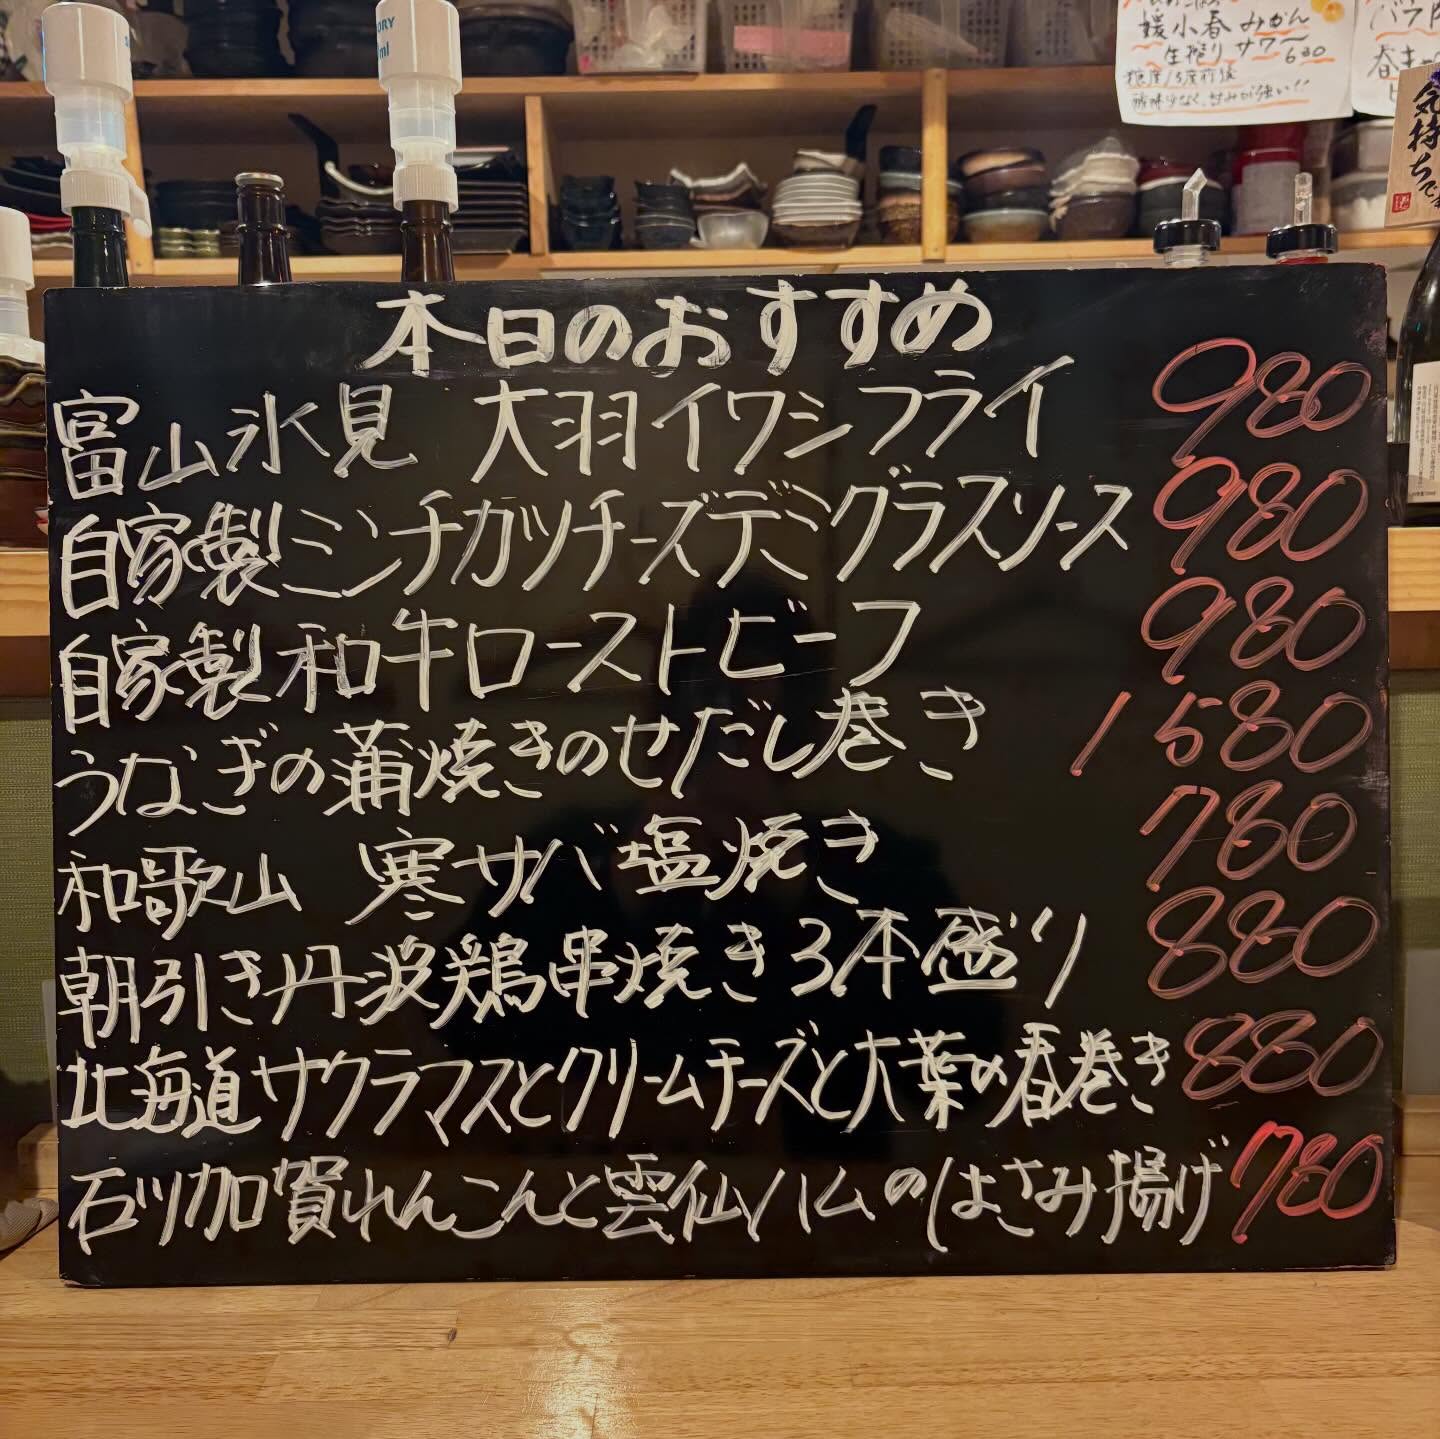 媛小春みかん
生搾りサワー
630
糖度15度前後
酸味少なく、甘みが強い!!
春キャ
気持ちで
本日のおすすめ
富山氷見 大羽イワシフライ 980
自家製ミンチカツチーズデミグラスソース 980
自家製和牛ローストビーフ 980
うなぎの蒲焼きのせだし巻き 1580
和歌山 寒サバ塩焼き 780
朝引き丹波鶏串焼き3本盛り 880
北海道サクラマスとクリームチーズと大葉の春巻き 880
石川加賀れんこんと雲仙ハムのはさみ揚げ 780